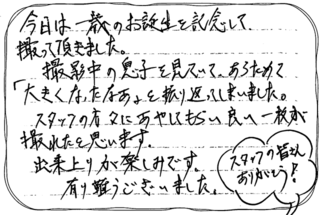 今日は一歳のお誕生を記念して
撮って頂きました。
撮影中の息子を見ていて、あらためて
「大きくなったなぁ」と振り返ってしまいました。
スタッフの方々にあやしてもらい良い一枚が
撮れたと思います。
出来上りが楽しみです。
有り難うございました。
スタッフの皆さん
ありがとう!